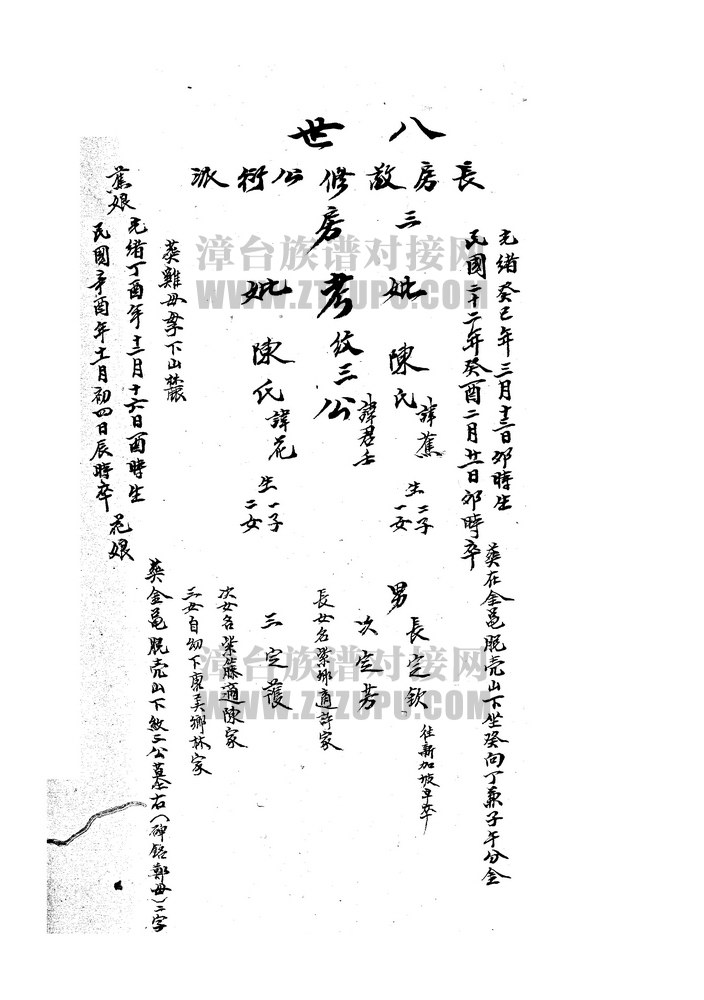 八世
長房敦修公衍派
光緒癸巳年三月十三日卯時生
民國二十二年癸酉二月廿日卯時卒
葬在金黽脫壳山下坐癸向丁兼子午分金
三妣陳氏諱蕉生二子一女
房考紋三公諱君壬
妣陳氏諱花生一子二女
男長定欽往新加坡早卒
次定芳
三定護
長女名紫娜適許家
次女名紫藤適陳家
三女自幼下康美鄉林家
葬雞母孛下山麓
蕉娘
光緒丁酉年十二月十六日酉時生
民國辛酉年十一月初四日辰時卒
花娘
葬金黽脫壳山下紋三公墓右(碑銘鄭母)二字
漳台族谱对接网
WWW.ZTZUPU.COM
漳台族谱对接网
WWW.ZTZUPU.COM